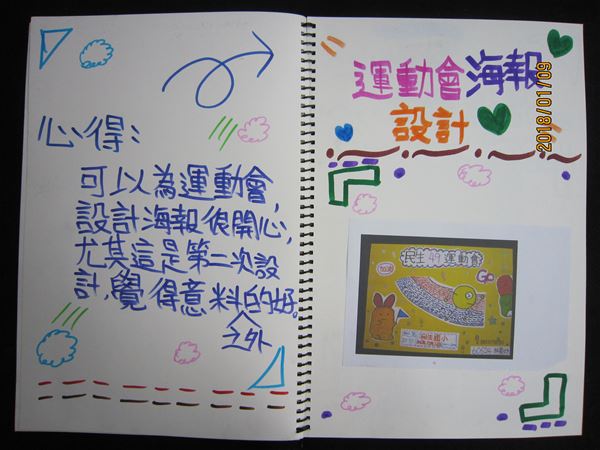 心得:
可以為運動會,
設計海報很開心,
尤其這是第二次設
計,覺得意料的好。
之外
運動會海報
設計
2018/01/09
民生49運動會
加油
Go